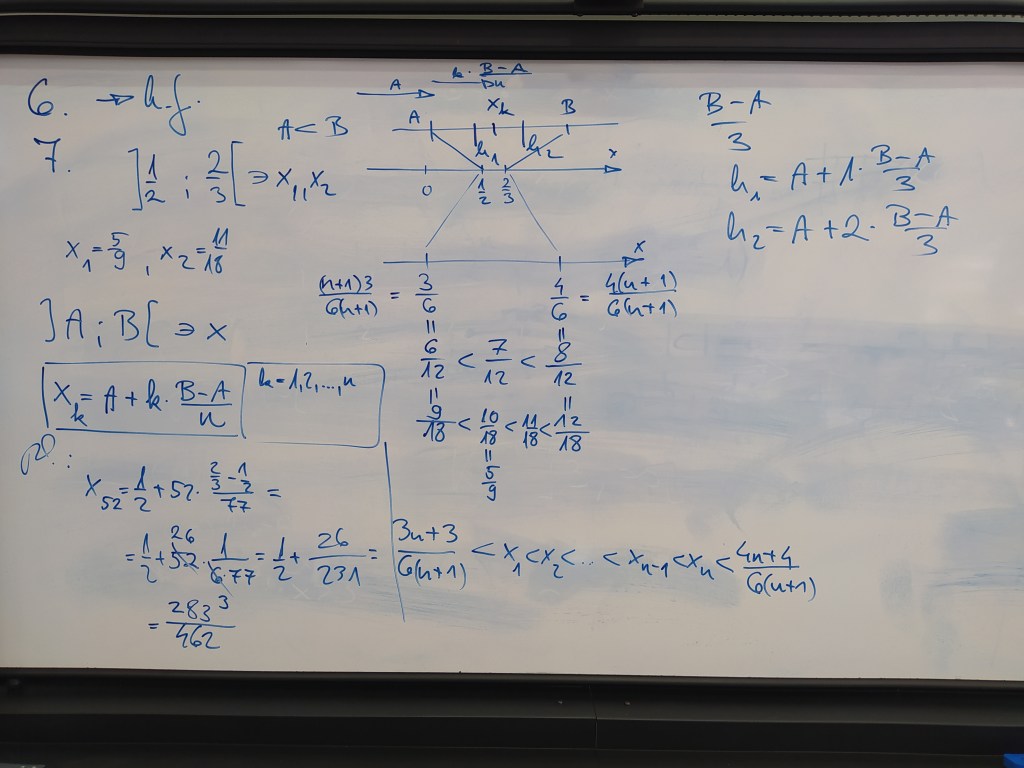 6. → h.f.
7. ]1/2 ; 2/3[ ∋ x₁, x₂
x₁ = 5/9 , x₂ = 11/18
]A ; B[ ∋ x
x_k = A + k · (B−A)/n
k = 1,2,...,n
x₅₂ = 1/2 + 52 · (2/3 − 1/2)/77 =
= 1/2 + 52 26 · 1/(6·77) = 1/2 + 26/231 =
= 283/462 3
A < B
A
k · (B−A)/n
A x_k B
h₁ h₂
0 1/2 2/3 x
x
(n+1)3/6(n+1) = 3/6 4/6 = 4(n+1)/6(n+1)
= =
6/12 < 7/12 < 8/12
= =
9/18 < 10/18 < 11/18 < 12/18
=
5/9
(3n+3)/6(n+1) < x₁ < x₂ < ... < x_{n−1} < x_n < (4n+4)/6(n+1)
(B−A)/3
h₁ = A + 1 · (B−A)/3
h₂ = A + 2 · (B−A)/3